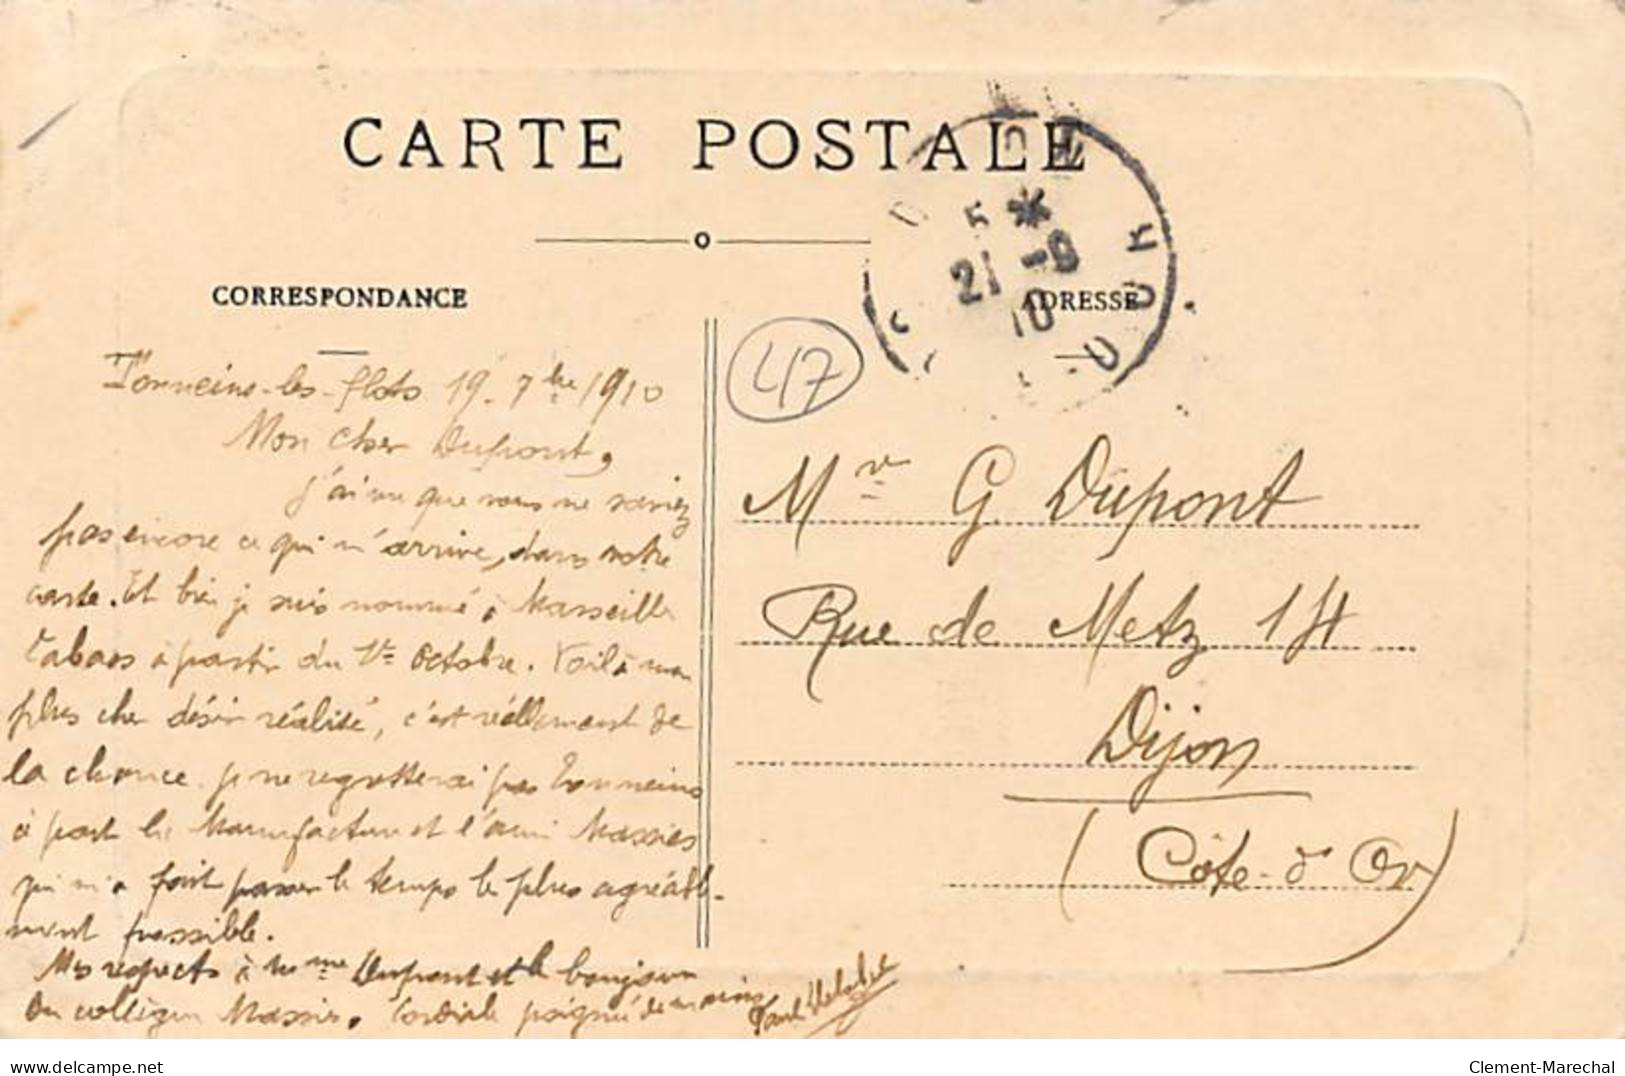 CARTE POSTALE
CORRESPONDANCE
ADRESSE
5 *
21 -9
10
47
Tonneins-les-flots 19-7bre 1910
Mon cher Dupont,
j'ai vu que vous ne saviez
pas encore ce qui m'arrive, dans votre
carte. Et bien je suis nommé à Marseille
Tabacs à partir du 1er Octobre. Voilà mon
plus cher désir réalisé, c'est réellement de
la chance. je ne regretterai pas Tonneins
à part la Manufacture et l'ami Massies
qui m'a fait passer le temps le plus agréable-
ment possible.
Mes respects à Mme Dupont et le bonjour
du collègue Massies. Cordiale poignée de mains
Paul
Mr G. Dupont
Rue de Metz 14
Dijon
(Côte-d'Or)
delcampe.net
Clement-Marechal